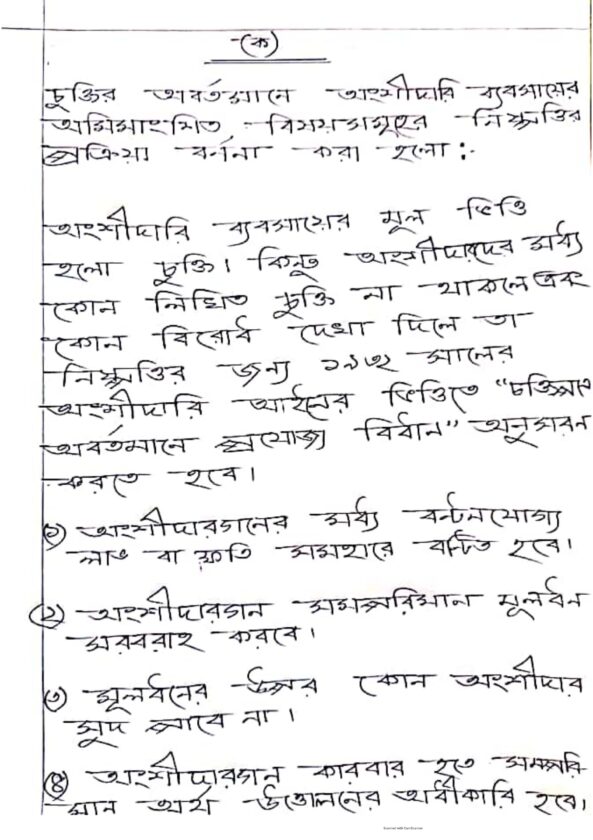 -(ক)
চুক্তির অবর্তমানে অংশীদারি ব্যবসায়ের
অমিমাংসিত বিষয়সমূহের নিষ্পত্তির
প্রক্রিয়া বর্ণনা করা হলো :-
অংশীদারি ব্যবসায়ের মূল ভিত্তি
হলো চুক্তি। কিন্তু অংশীদারদের মধ্যে
কোন লিখিত চুক্তি না থাকলে এবং
কোন বিরোধ দেখা দিলে তা
নিষ্পত্তির জন্য ১৯৩২ সালের
অংশীদারি আইনের ভিত্তিতে "চুক্তিপত্র
অবর্তমানে প্রযোজ্য বিধান" অনুসরন
করতে হবে।
(১) অংশীদারগনের মধ্য বন্টনযোগ্য
লাভ বা ক্ষতি সমহারে বন্টিত হবে।
(২) অংশীদারগন সমপরিমান মূলধন
সরবরাহ করবে।
(৩) মূলধনের উপর কোন অংশীদার
সুদ পাবে না।
(৪) অংশীদারগন কারবার হতে সমপরি-
মান অর্থ উত্তোলনের অধীকারি হবে।
Scanned with CamScanner